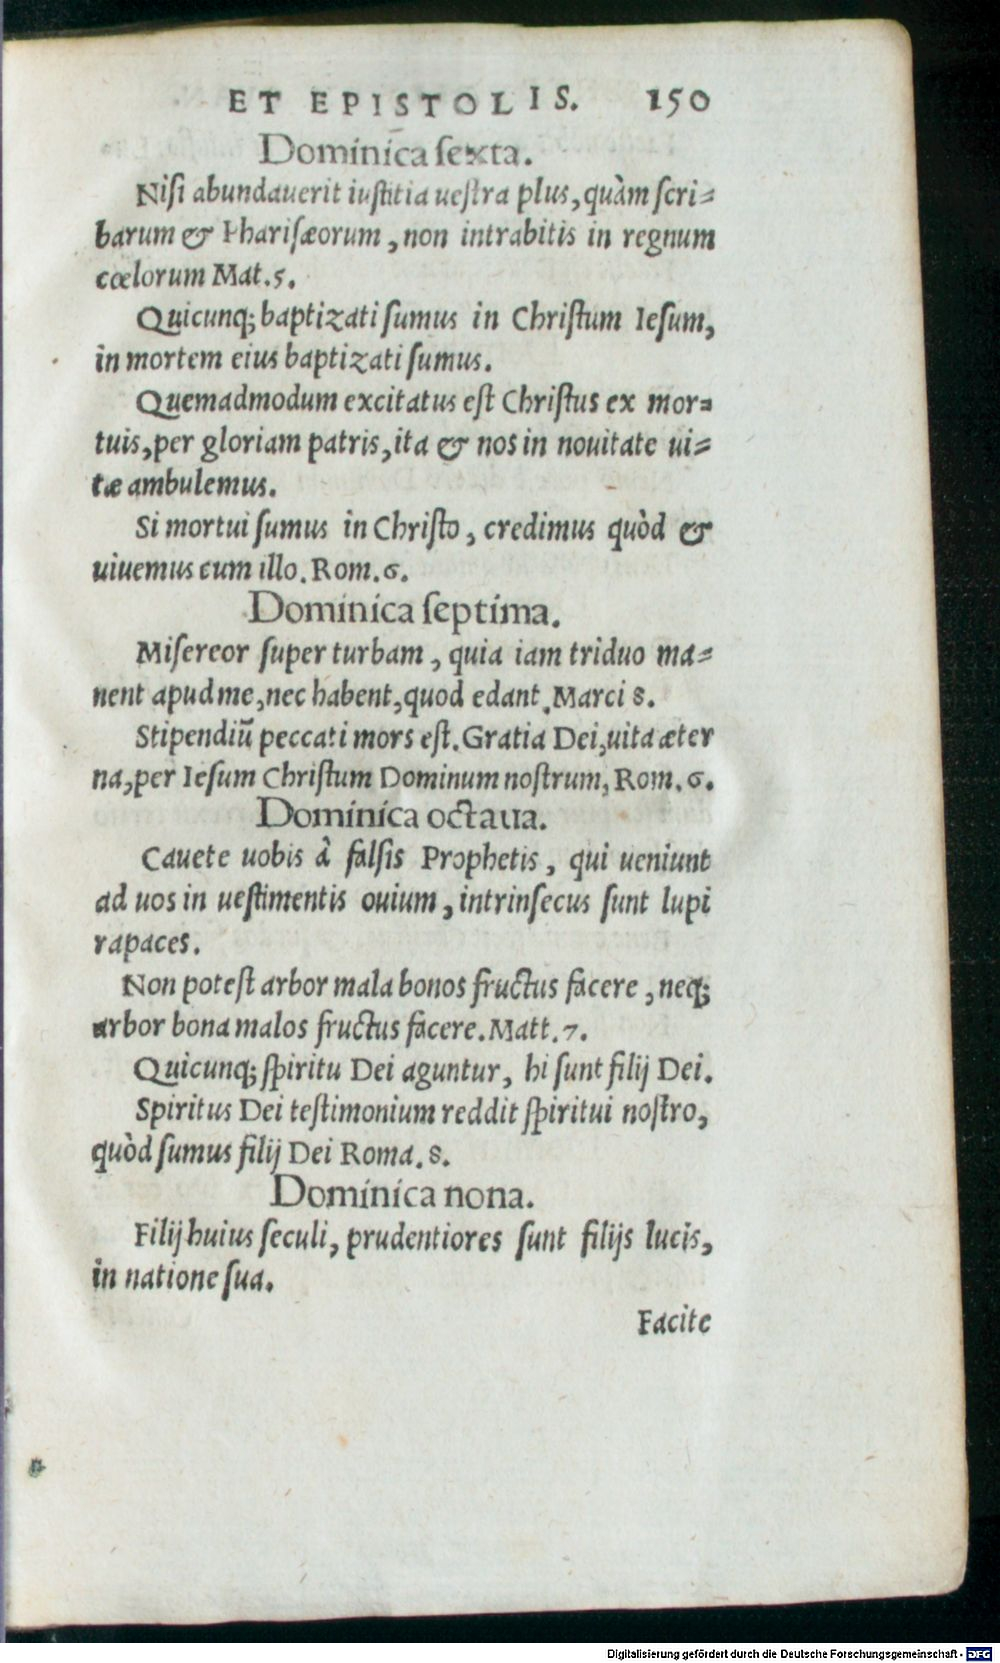 ET EPISTOLIS. 150
Dominica ſexta.
Niſi abundauerit iuſtitia ueſtra plus, quàm ſcri⸗
barum & Phariſæorum, non intrabitis in regnum
cœlorum Mat. 5.
Quicunq; baptizati ſumus in Chriſtum Ieſum,
in mortem eius baptizati ſumus.
Quemadmodum excitatus eſt Chriſtus ex mor⸗
tuis, per gloriam patris, ita & nos in nouitate ui⸗
tæ ambulemus.
Si mortui ſumus in Chriſto, credimus quòd &
uiuemus cum illo. Rom. 6.
Dominica ſeptima.
Miſereor ſuper turbam, quia iam triduo ma⸗
nent apud me, nec habent, quod edant. Marci 8.
Stipendiũ peccati mors eſt. Gratia Dei, uita æter
na, per Ieſum Chriſtum Dominum noſtrum, Rom. 6.
Dominica octaua.
Cauete uobis à falſis Prophetis, qui ueniunt
ad uos in ueſtimentis ouium, intrinſecus ſunt lupi
rapaces.
Non poteſt arbor mala bonos fructus facere, neq;
arbor bona malos fructus facere. Matt. 7.
Quicunq; ſpiritu Dei aguntur, hi ſunt filij Dei.
Spiritus Dei teſtimonium reddit ſpiritui noſtro,
quòd ſumus filij Dei Roma. 8.
Dominica nona.
Filij huius ſeculi, prudentiores ſunt filijs lucis,
in natione ſua.
Facite
Digitalisierung gefördert durch die Deutsche Forschungsgemeinschaft - DFG